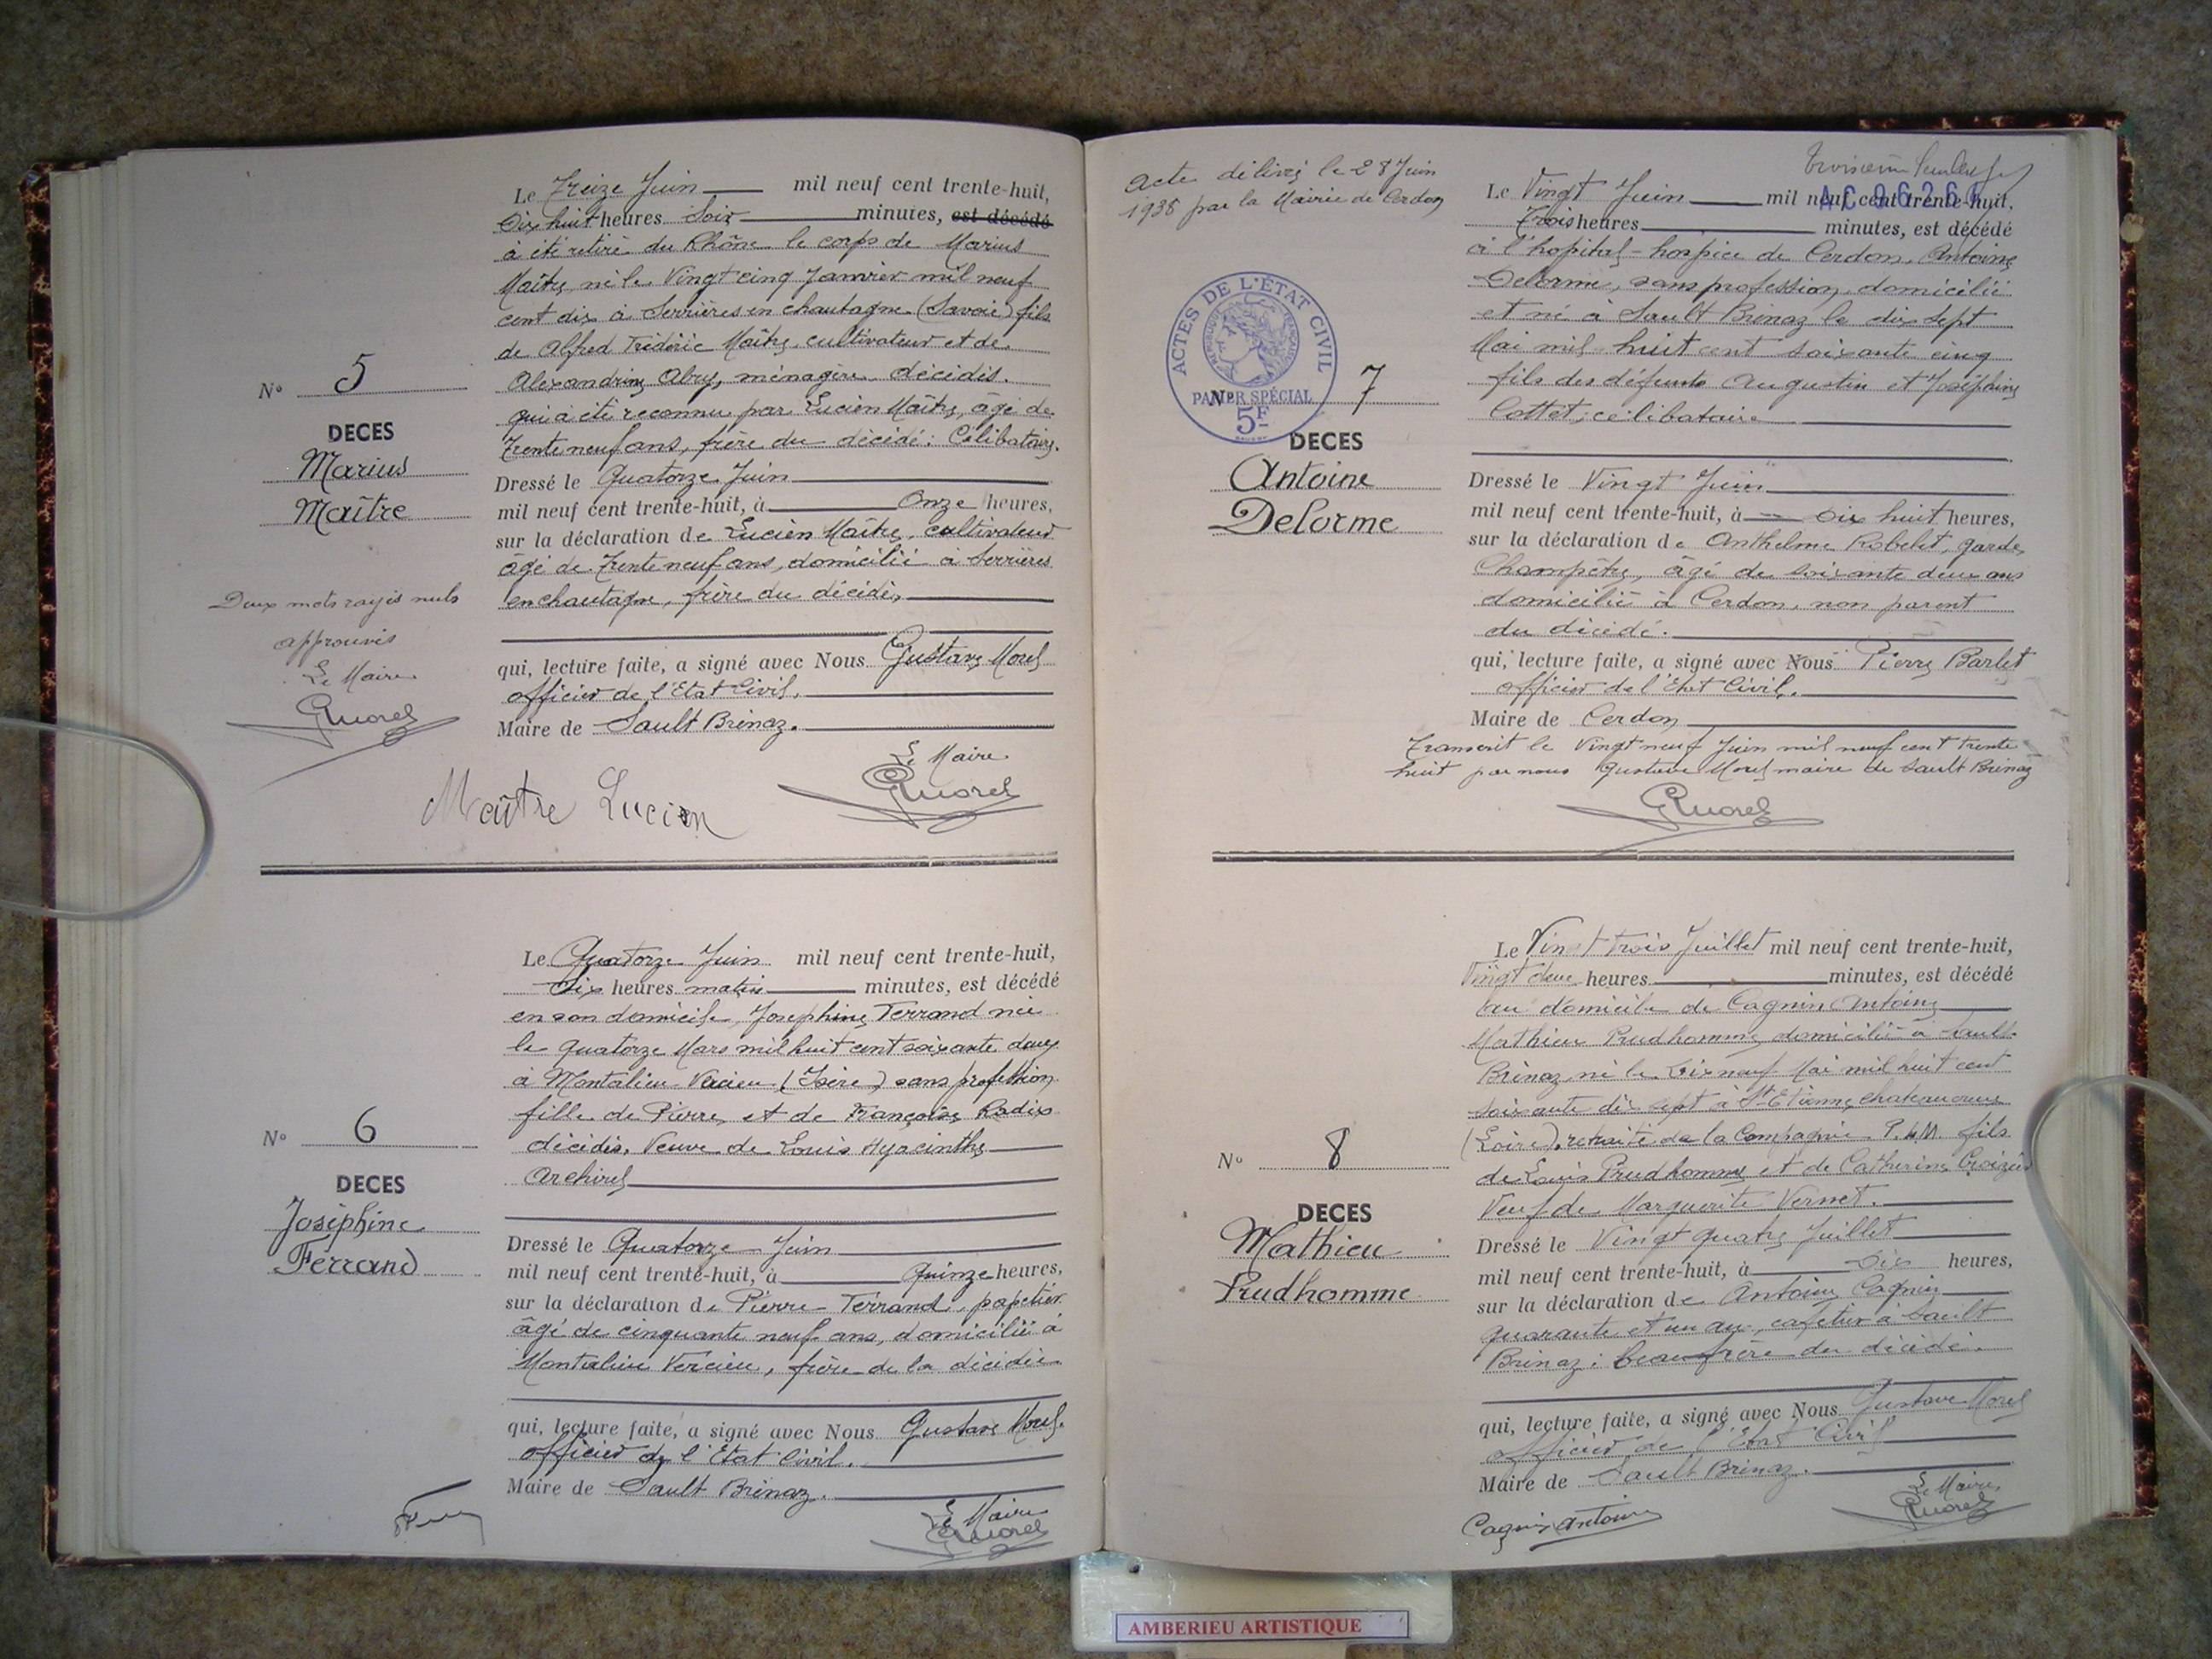 Le Treize Juin mil neuf cent trente-huit,
Dix huit heures Soir minutes, est décédé
à été retiré du Rhône le corps de Marius
Maître né le Vingt cinq Janvier mil neuf
cent dix à Serrières en chautagne (Savoie) fils
de Alfred Frédéric Maître, cultivateur et de
Alexandrine Abry, ménagère décédés.
qui a été reconnu par Lucien Maître, âgé de
Trente neuf ans, frère du décédé: Célibataire.
N° 5
DECES
Marius
Maître
Dressé le Quatorze Juin
mil neuf cent trente-huit, à Onze heures,
sur la déclaration de Lucien Maître, cultivateur
âgé de Trente neuf ans, domicilié à Serrières
en chautagne, frère du décédé,
Deux mots rayés nuls
approuvés
Le Maire
GMorel
qui, lecture faite, a signé avec Nous Gustave Morel
officier de l'Etat Civil.
Maire de Sault Brénaz.
Le Maire
GMorel
Maître Lucien
Le Quatorze Juin mil neuf cent trente-huit,
Dix heures matin minutes, est décédé
en son domicile, Joséphine Ferrand née
le quatorze Mars mil huit cent soixante deux
à Montalieu Vercieu (Isère) sans profession
fille de Pierre et de Françoise Radix
décédés, Veuve de Louis Hyacinthe
N° 6
DECES
Joséphine
Ferrand
Dressé le Quatorze Juin
mil neuf cent trente-huit, à Quinze heures,
sur la déclaration de Pierre Ferrand, papetier
âgé de cinquante neuf ans, domicilié à
Montalieu Vercieu, frère de la décédée
qui, lecture faite, a signé avec Nous Gustave Morel
officier de l'Etat Civil.
Maire de Sault Brénaz.
Le Maire
GMorel
Acte délivré le 28 Juin
1938 par la Mairie de Cerdon
ACTES DE L'ÉTAT CIVIL
RÉPUBLIQUE FRANÇAISE
PAPIER SPÉCIAL
5F
Le Vingt Juin mil neuf cent trente-huit,
Trois heures minutes, est décédé
à l'hopital-hospice de Cerdon, Antoine
Delorme, sans profession, domicilié
et né à Sault Brénaz le dix sept
Mai mil huit cent soixante cinq
fils des défunts Augustin et Joséphine
Cottet; célibataire
N° 7
DECES
Antoine
Delorme
Dressé le Vingt Juin
mil neuf cent trente-huit, à Dix huit heures,
sur la déclaration de Anthelme Robelet, garde
Champêtre, âgé de soixante deux ans
domicilié à Cerdon, non parent
du décédé.
qui, lecture faite, a signé avec Nous Pierre Barlet
officier de l'Etat Civil.
Maire de Cerdon
Transcrit le Vingt neuf Juin mil neuf cent trente
huit par nous Gustave Morel maire de Sault Brénaz
GMorel
Le Vingt trois Juillet mil neuf cent trente-huit,
Vingt deux heures minutes, est décédé
au domicile de Cagnin Antoine
Mathieu Prudhomme, domicilié à Sault
Brénaz né le Dix neuf Mai mil huit cent
soixante dix sept à St Etienne, chateaucreux
(Loire), retraité de la Compagnie P.L.M. fils
de Louis Prudhomme et de Catherine
Veuf de Marguerite Vernet.
N° 8
DECES
Mathieu
Prudhomme
Dressé le Vingt quatre Juillet
mil neuf cent trente-huit, à Dix heures,
sur la déclaration de Antoine Cagnin
quarante et un an, cafetier à Sault
Brénaz: beau frère du décédé.
qui, lecture faite, a signé avec Nous Gustave Morel
officier de l'Etat Civil
Maire de Sault Brénaz.
Le Maire,
GMorel
Cagnin Antoine
AMBERIEU ARTISTIQUE